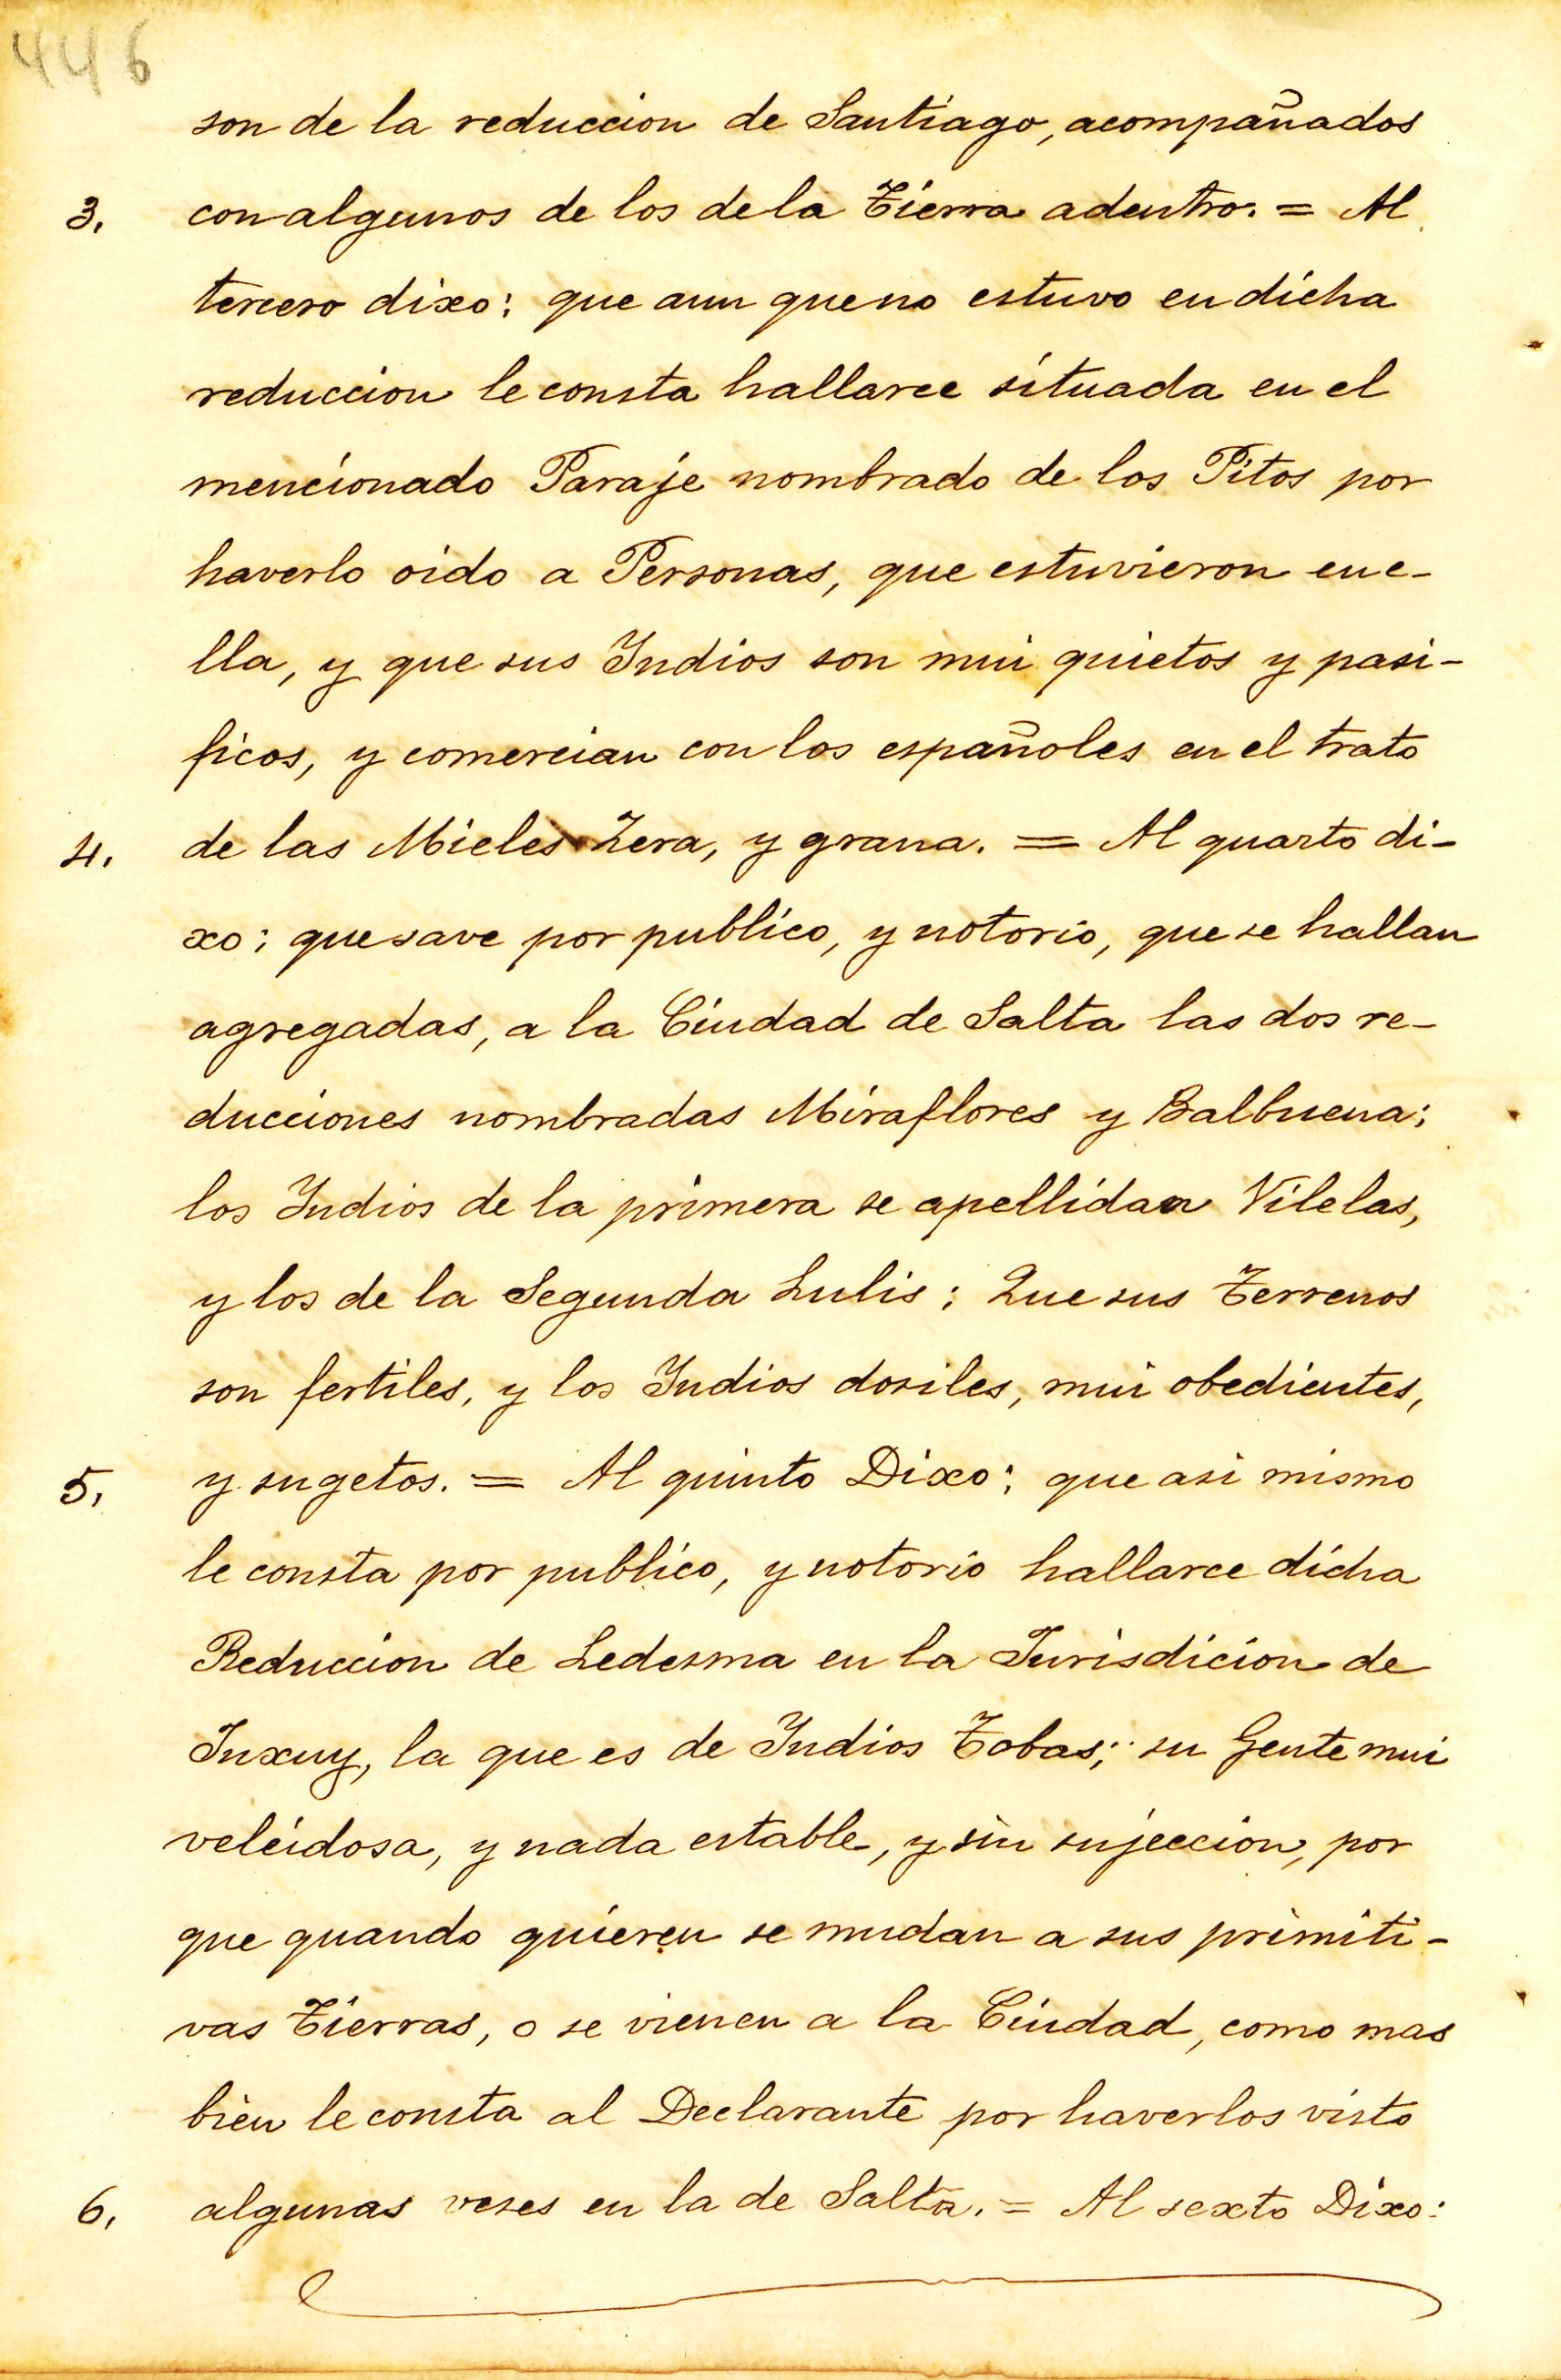 446
son de la reduccion de Santiago, acompañados
3. con algunos de los de la Tierra adentro. = Al
tercero dixo: que aun que no estuvo en dicha
reduccion le consta hallarce situada en el
mencionado Paraje nombrado de los Pitos por
haverlo oido a Personas, que estuvieron en e-
lla, y que sus Indios son mui quietos y pasi-
ficos, y comercian con los españoles en el trato
4. de las Mieles Zera, y grana. = Al quarto di-
xo: que save por publico, y notorio, que se hallan
agregadas, a la Ciudad de Salta las dos re-
ducciones nombradas Miraflores y Balbuena;
los Indios de la primera se apellidan Vilelas,
y los de la Segunda Lulis; Que sus Terrenos
son fertiles, y los Indios dosiles, mui obedientes,
5. y sugetos. = Al quinto Dixo: que asi mismo
le consta por publico, y notorio hallarce dicha
Reduccion de Ledesma en la Jurisdicion de
Juxuy, la que es de Indios Tobas; su Gente mui
veleidosa, y nada estable, y sin sujeccion, por
que quando quieren se mudan a sus primiti-
vas Tierras, o se vienen a la Ciudad, como mas
bien le consta al Declarante por haverlos visto
6. algunas veses en la de Salta. = Al sexto Dixo: